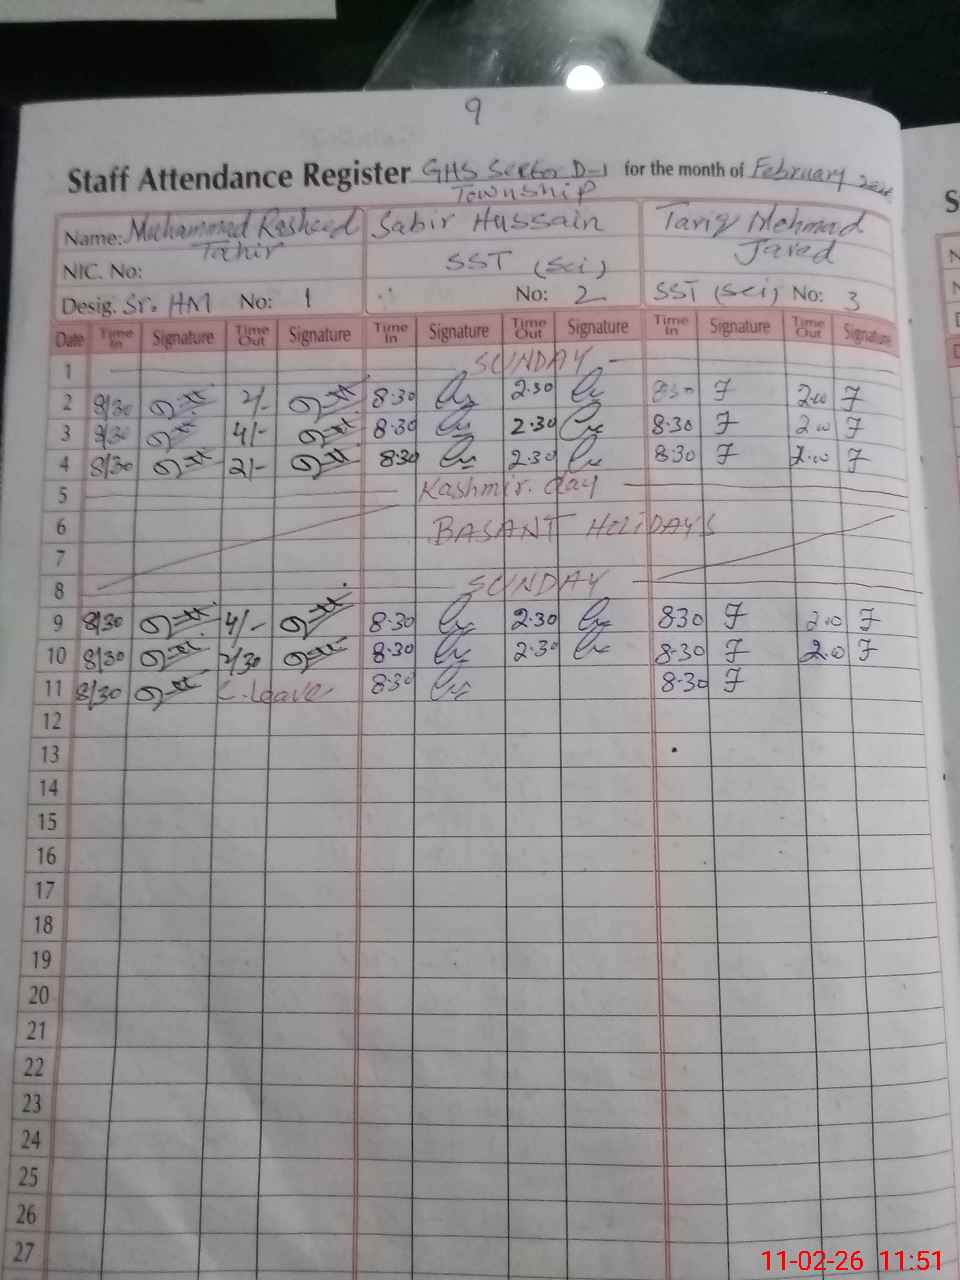 9
Staff Attendance Register GHS Sector D-1 for the month of February
Township
Name: Muhammad Rasheed Sabir Hussain Tariq Mehmad
Tahir Javed
NIC. No: SST (Sci)
Desig. Sr. HM No: 1 No: 2 SST (Sci) No: 3
Date Time In Signature Time Out Signature Time In Signature Time Out Signature Time In Signature Time Out Signature
1 SUNDAY
2 8/30 2/- 8.30 2.30 8:30 2.00
3 8/30 4/- 8.30 2.30 8.30 2.00
4 8/30 2/- 8.30 2.30 8.30 2.00
5 Kashmir. day
6 BASANT HOLIDAYS
7
8 SUNDAY
9 8/30 4/- 8.30 2.30 830 2.00
10 8/30 2/30 8.30 2.30 8.30 2.0
11 8/30 C. Leave 8.30 8.30
12
13
14
15
16
17
18
19
20
21
22
23
24
25
26
27
11-02-26 11:51